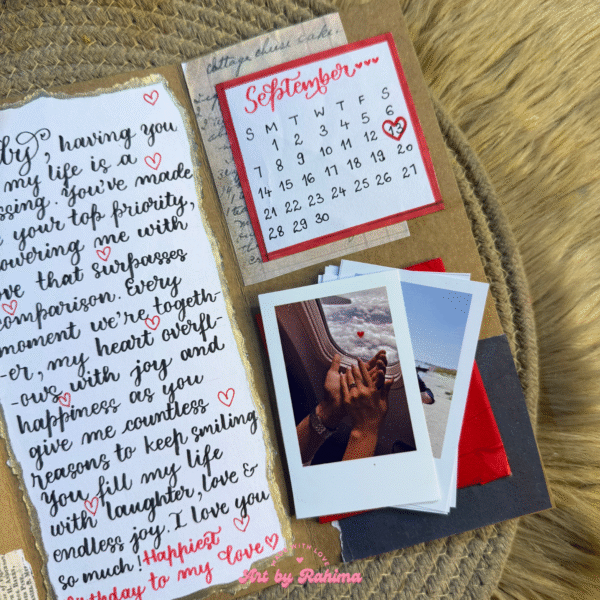 by, having you
my life is a
ssing. You've made
your top priority,
owering me with
ve that surpasses
comparison. Every
moment we're togeth-
-er, my heart overfl-
-ows with joy and
happiness as you
give me countless
reasons to keep smiling
You fill my life
with laughter, love &
endless joy. I love you
so much! Happiest
irthday to my love
cottage cheese cake.
September
S M T W T F S
1 2 3 4 5 6
7 8 9 10 11 12 13
14 15 16 17 18 19 20
21 22 23 24 25 26 27
28 29 30
WITH LOVE
Art by Rahima